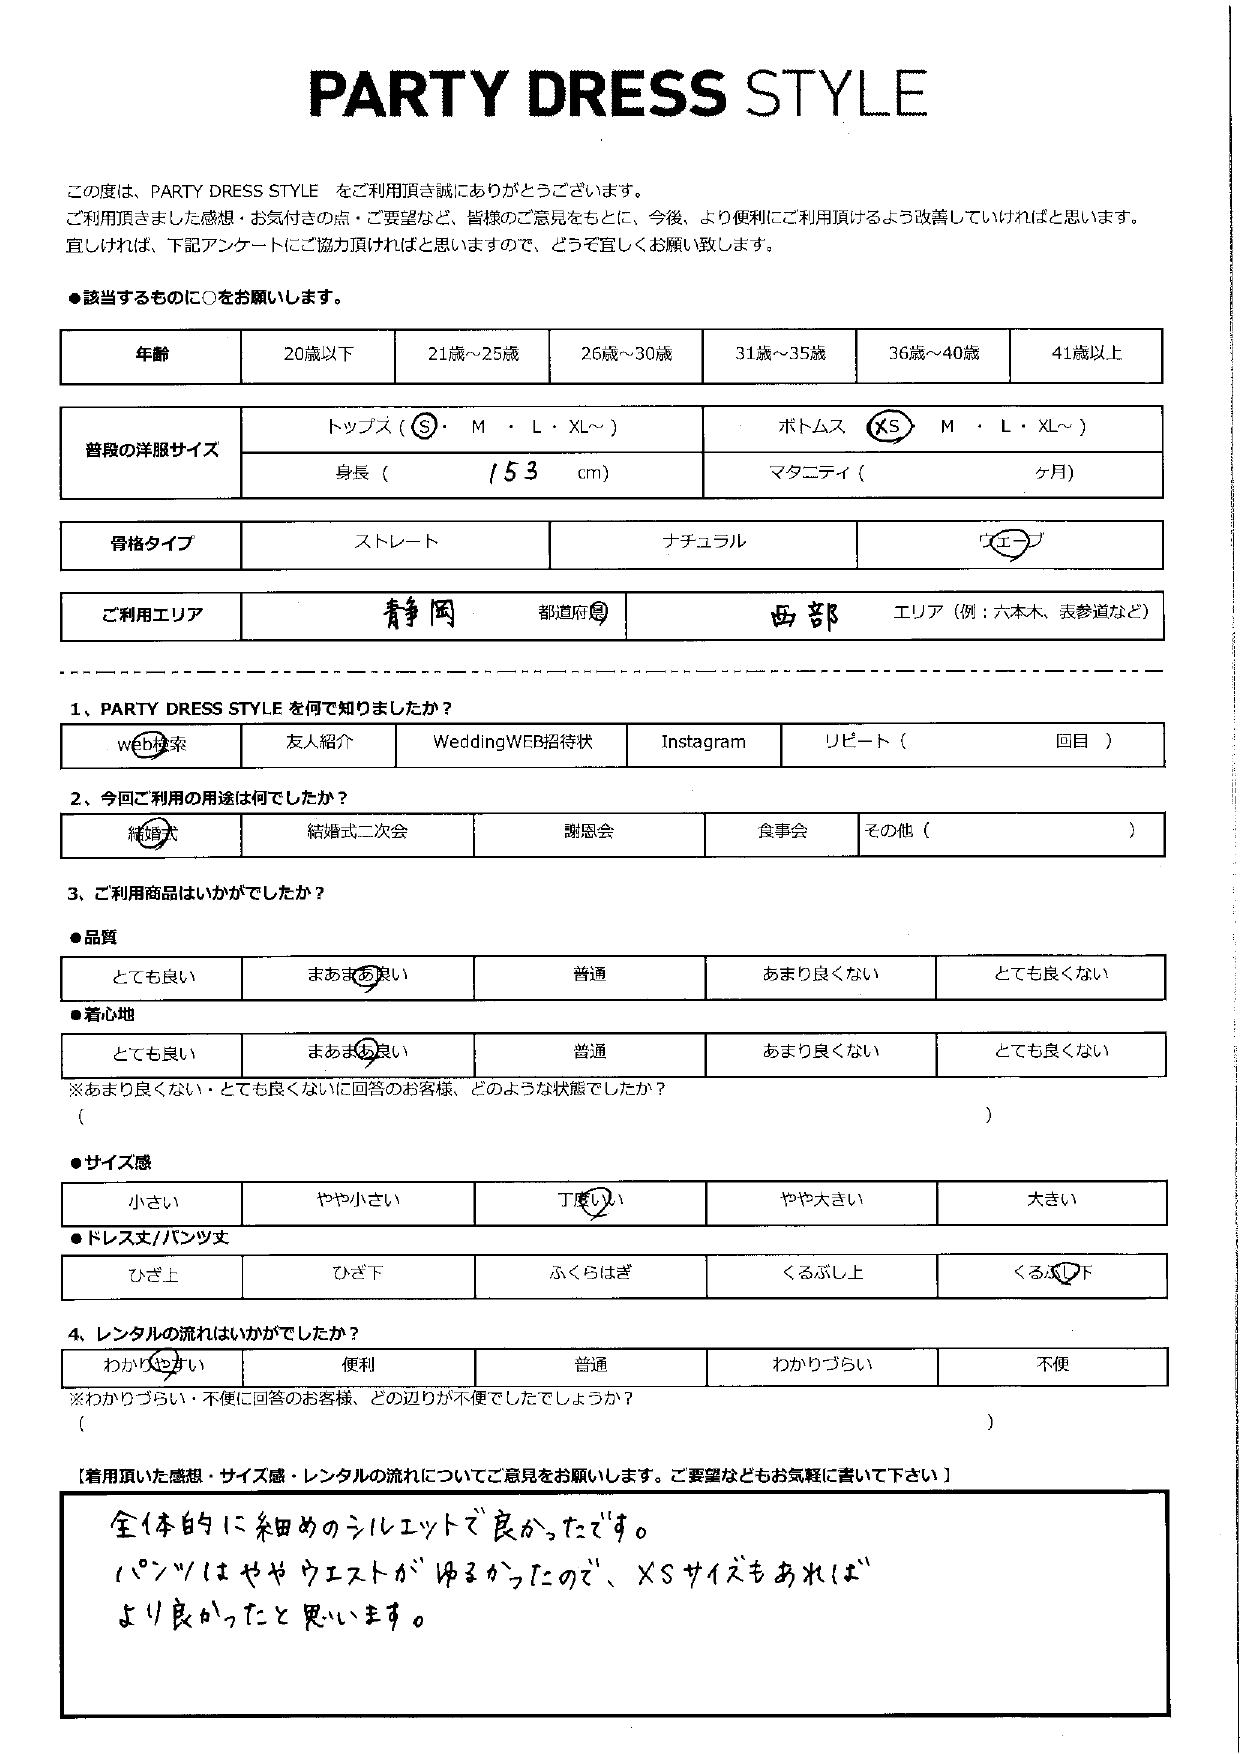 PARTY DRESS STYLE
この度は、PARTY DRESS STYLE をご利用頂き誠にありがとうございます。
ご利用頂きました感想・お気付きの点・ご要望など、皆様のご意見をもとに、今後、より便利にご利用頂けるよう改善していければと思います。
宜しければ、下記アンケートにご協力頂ければと思いますので、どうぞ宜しくお願い致します。
●該当するものに○をお願いします。
年齢 20歳以下 21歳～25歳 26歳～30歳 31歳～35歳 36歳～40歳 41歳以上
普段の洋服サイズ トップス ( S ・ M ・ L ・ XL～ ) ボトムス XS M ・ L ・ XL～ )
身長 ( 153 cm) マタニティ ( ヶ月)
骨格タイプ ストレート ナチュラル ウェーブ
ご利用エリア 静岡 都道府県 西部 エリア（例：六本木、表参道など）
1、PARTY DRESS STYLE を何で知りましたか？
web検索 友人紹介 WeddingWEB招待状 Instagram リピート ( 回目 )
2、今回ご利用の用途は何でしたか？
結婚式 結婚式二次会 謝恩会 食事会 その他 ( )
3、ご利用商品はいかがでしたか？
●品質
とても良い まあまあ良い 普通 あまり良くない とても良くない
●着心地
とても良い まあまあ良い 普通 あまり良くない とても良くない
※あまり良くない・とても良くないに回答のお客様、どのような状態でしたか？
( )
●サイズ感
小さい やや小さい 丁度いい やや大きい 大きい
●ドレス丈/パンツ丈
ひざ上 ひざ下 ふくらはぎ くるぶし上 くるぶし下
4、レンタルの流れはいかがでしたか？
わかりやすい 便利 普通 わかりづらい 不便
※わかりづらい・不便に回答のお客様、どの辺りが不便でしたでしょうか？
( )
【着用頂いた感想・サイズ感・レンタルの流れについてご意見をお願いします。ご要望などもお気軽に書いて下さい】
全体的に細めのシルエットで良かったです。
パンツはややウエストがゆるかったので、XSサイズもあれば
より良かったと思います。